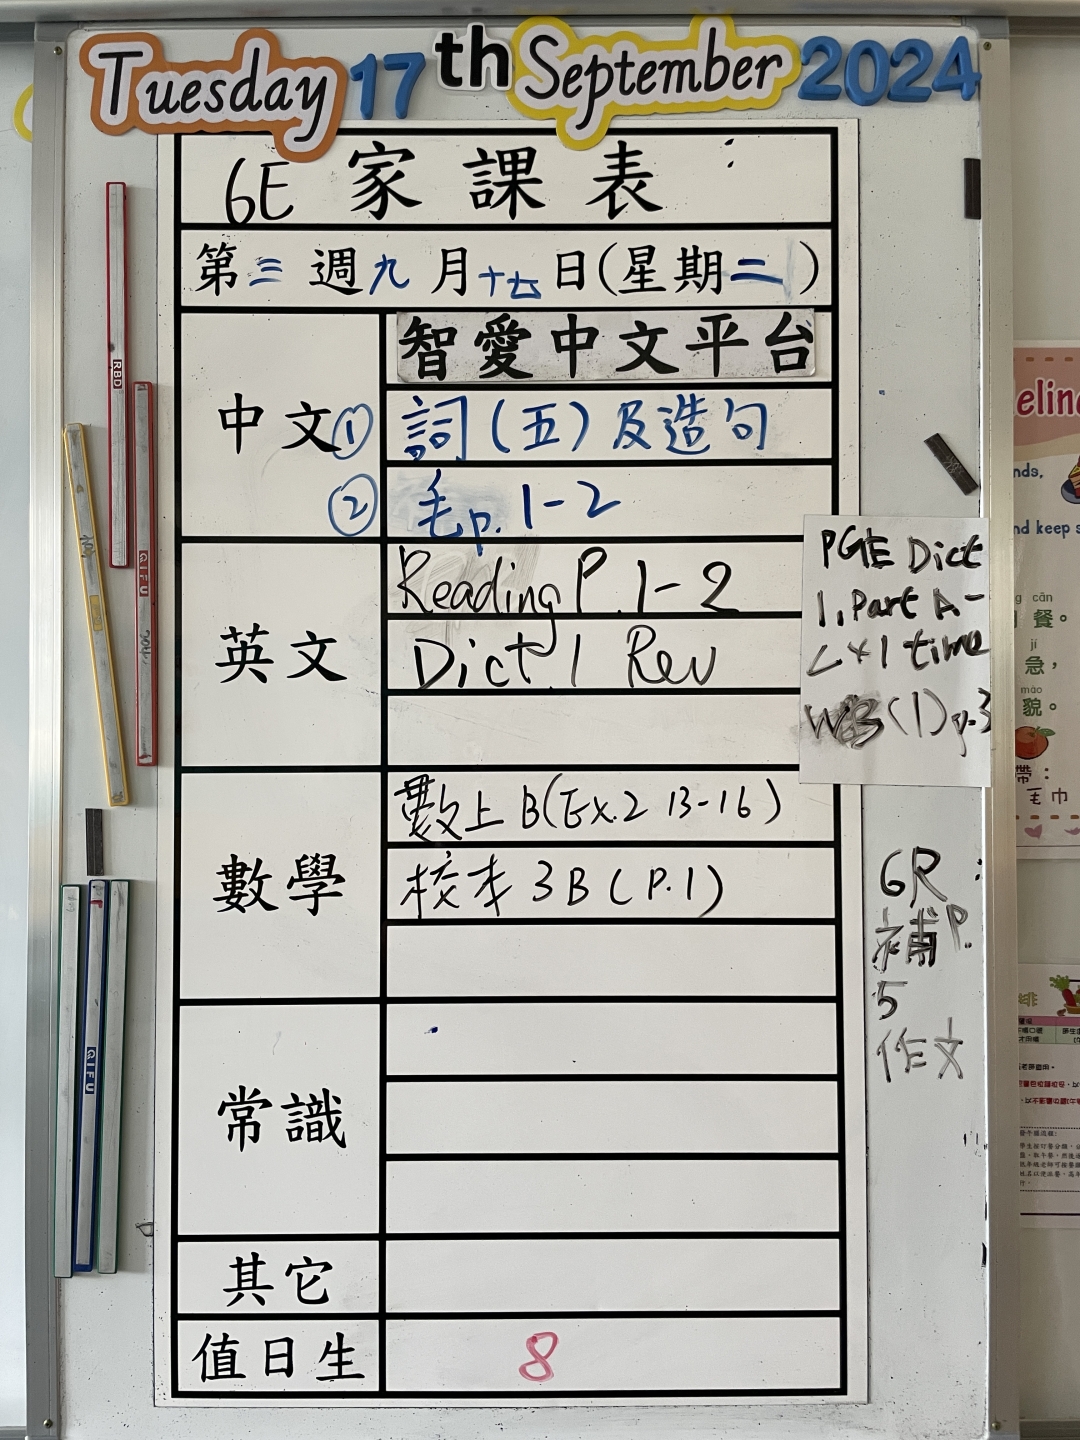 Tuesday 17th September 2024
6E 家課表：
第三週九月十七日(星期二)
中文
智愛中文平台
① 詞(五)及造句
② 毛p.1-2
英文
Reading P.1-2
Dict.1 Rev
PGE Dict
1.Part A-
C×1 time
WB(1)p.3
數學
數上B(Ex.2 13-16)
校本3B(P.1)
常識
其它
值日生
8
6R:
補P.
5
作文
RBD
QIFU
QIFU
eline
nds,
nd keep s
cān
餐。
jí
急，
mào
貌。
帶：
毛巾
排